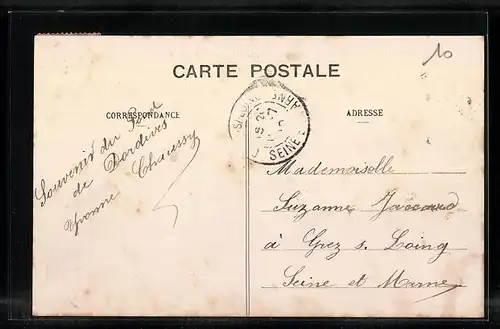 10
CARTE POSTALE
CORRESPONDANCE
ADRESSE
Souvenir du
de Dordives
Yvonne Chaussy
SEINE
Mademoiselle
Suzanne
à Grez s. Loing
Seine et Marne